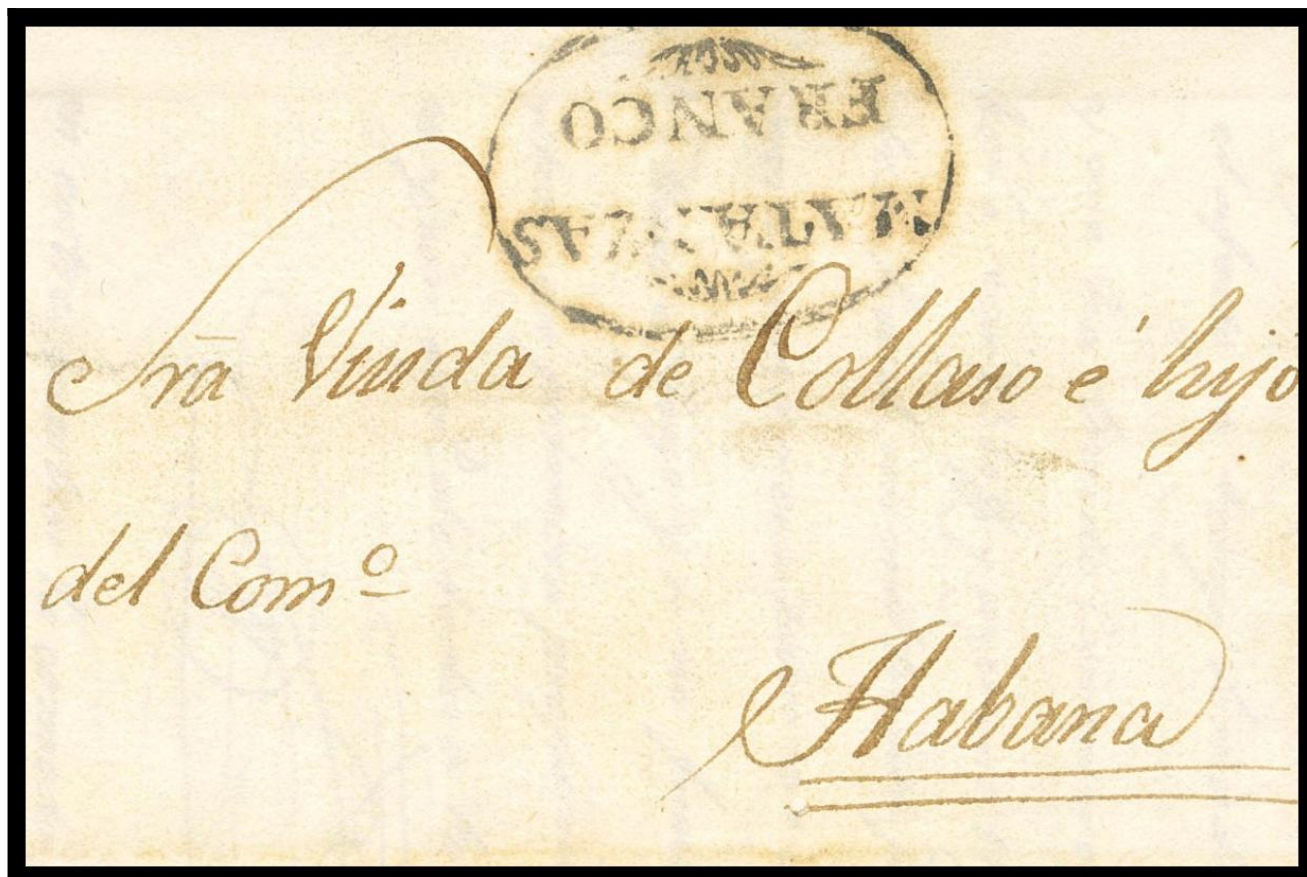 MATANZAS
FRANCO
Srā Viuda de Collaso é hijo
del Comº
Habana